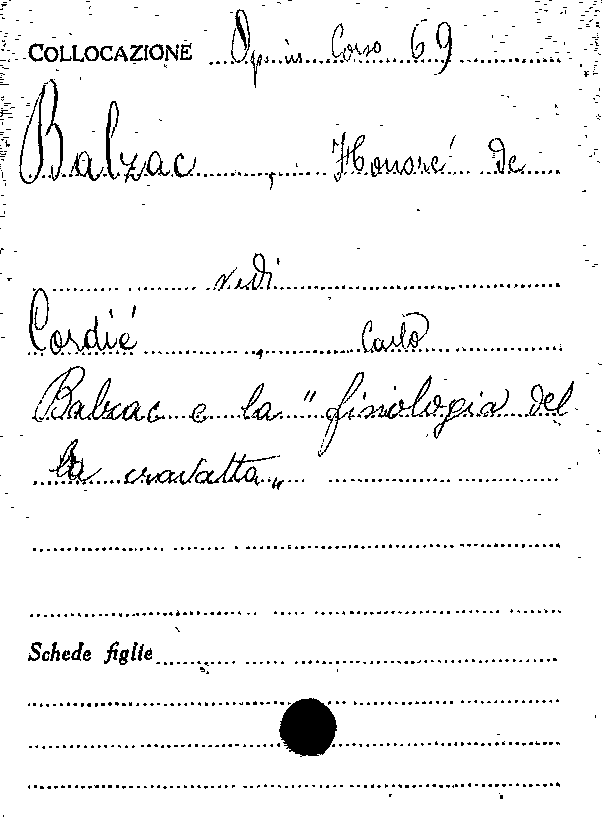 COLLOCAZIONE Op. in Corso 69
Balzac, Honoré de
vedi
Cordié, Carlo
Balzac e la "fisiologia del
la cravatta"
Schede figlie